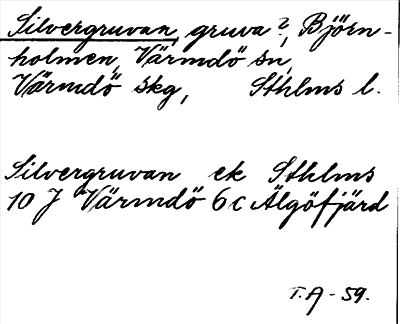 Silvergruvan, gruva?, Björn-
holmen, Värmdö sn,
Värmdö skg, Sthlms l.
Silvergruvan ek Sthlms
10 J Värmdö 6c Älgöfjärd
T.A - 59.